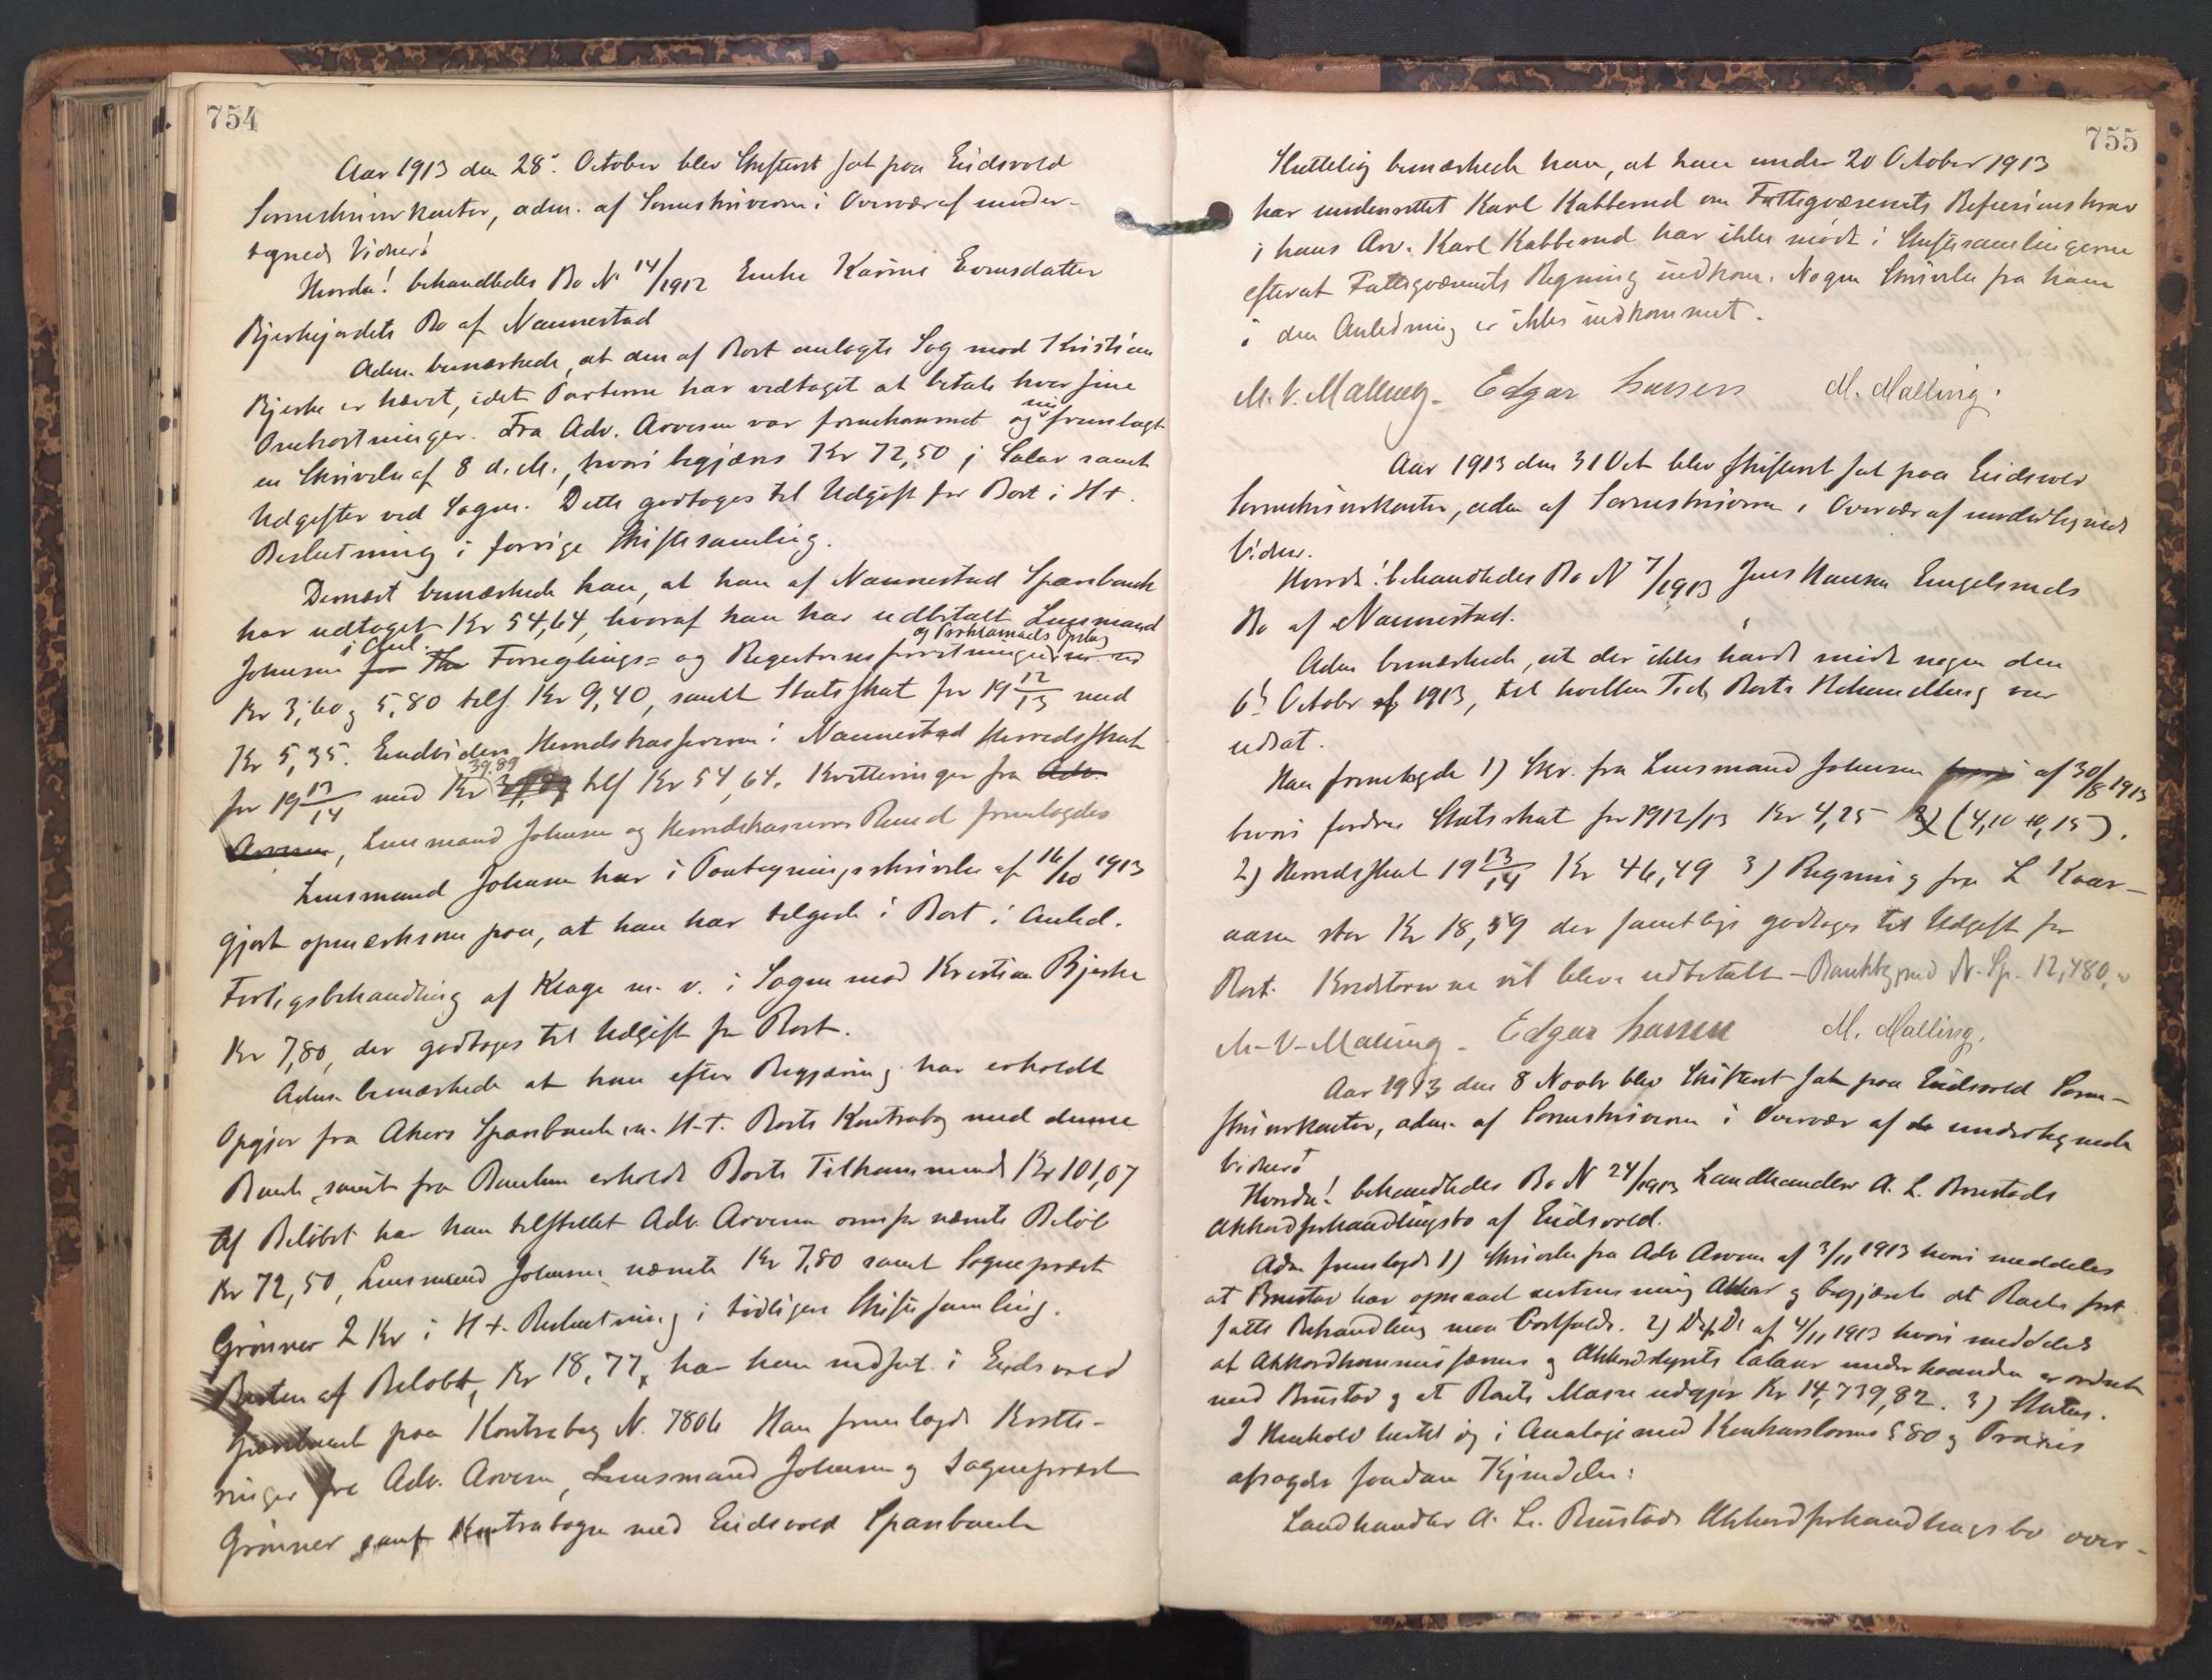 754
Aar 1913 den 28de October blev Skifteret sat paa Eidsvold
Sorenskriverkontor, adm. af Sorenskriveren i Overvær af under-
tegnede Vidner!
Hvorda! behandledes Bo N 14/1912 Enke Karine Evensdatter
Bjerkejordets Bo af Nannestad
Adm. bemærkede, at den af Boet anlagte Sag mod Kristian
Bjerke er hævet, idet Parterne har vedtaget at betale hver sine
Omkostninger. Fra Adv. Arvesen var fremkommet og fremlagt
en Skrivelse af 8 d. M., hvori begjæres Kr 72,50 i Salær samt
Udgifter ved Sagen. Dette godtoges til Udgift for Boet i H. t.
Beslutning i forrige Skiftesamling.
Dernæst bemærkede han, at han af Nannestad Sparebank
har udtaget Kr 54,64, hvoraf han har udbetalt Lensmand
og Proklamaets Opslag
Johnsen i Anl. Forseglings= og Registreringsforretningen
Kr 3,60 og 5,80 tils. Kr 9,40, samt Statsskat for 19 12/13 med
Kr 5,35. Endvidere Herredskassereren i Nannestad Herredsskat
for 19 13/14 med Kr 39,89 tils Kr 54,64. Kvitteringer fra Adv.
Arvesen, Lensmand Johnsen og Herredskasserer Ruud fremlagdes
Lensmand Johnsen har i Paategningsskrivelse af 16/10 1913
gjort opmærksom paa, at han har tilgode i Boet i Anled.
Forligsbehandling af Klage m. v. i Sagen mod Kristian Bjerke
Kr 7,80, der godtoges til Udgift for Boet.
Adm. bemærkede at han efter Begjæring har erholdt
Opgjør fra Akers Sparebank m. H. t. Boets Kontrabog med denne
Bank, samt fra Banken erholdt Boets Tilkommende Kr 101,07
Af Beløbet har han tilstillet Adv. Arvesen ovenfor nævnte Beløb
Kr 72,50, Lensmand Johnsen nævnte Kr 7,80 samt Sogneprest
Grønner 2 Kr i H. t. Beslutning i tidligere Skiftesamling.
Resten af Beløbet, Kr 18,77, har han indsat i Eidsvold
Sparebank paa Kontrabog N. 7806 Han fremlagde Kvitte-
ringer fra Adv. Arvesen, Lensmand Johnsen og Sogneprest
Grønner samt Kontrabogen med Eidsvold Sparebank
755
Sluttelig bemærkede han, at han under 20 October 1913
har underrettet Karl Kabberud om Fattigvæsenets Refusionskrav
i hans Arv. Karl Kabberud har ikke mødt i Skiftesamlingerne
efterat Fattigvæsenets Regning indkom. Nogen Skrivelse fra ham
i den Anledning er ikke indkommet.
M. V. Malling. Edgar Larsen M. Malling.
Aar 1913 den 31 Oct blev Skifteret sat paa Eidsvold
Sorenskriverkontor, adm af Sorenskriveren i Overvær af undertegnede
Vidner.
Hvorda! behandledes Bo N 7/1913 Jens Hansen Engelsruds
Bo af Nannestad.
Adm bemærkede, at der ikke havde mødt nogen den
6te October 1913, til hvilken Tid Boets Behandling var
udsat.
Han fremlagde 1) Skr. fra Lensmand Johnsen af 30/8 1913
hvori fordres Statsskat for 1912/13 Kr 4,25 (4,10 + 0,15).
2) Herredsskat 19 13/14 Kr 46,49 3) Regning fra L Kaar-
aasen stor Kr 18,59 der samtlige godtoges til Udgift for
Boet. Kreditorerne vil blive udbetalt – Bankbog med N. Sp. 12,480,
M. V. Malling. Edgar Larsen M. Malling.
Aar 1913 den 8 Novbr blev Skifteret sat paa Eidsvold Soren-
skriverkontor, adm. af Sorenskriveren i Overvær af undertegnede
Vidner!
Hvorda! behandledes Bo N 24/1913 Landhandler A. L. Brustads
Akkordforhandlingsbo af Eidsvold.
Adm fremlagde 1) Skrivelse fra Adv Arvesen af 3/11 1913 hvori meddeles
at Brustad har opnaaet Akkord og begjærede at Boets fort-
satte Behandling maa bortfalde. 2) Do fra Do af 4/11 1913 hvori meddeles
at Akkordkommissærens og Akkordstyrets Salærer underhaanden er ordnet
med Brustad og at Boets Masse udgjør Kr 14,739,82. 3) Status.
I Henhold hertil og i Analogi med Konkurslovens § 80 og Praxis
afsagdes saadan Kjendelse:
Landhandler A. L. Brustads Akkordforhandlingsbo over-